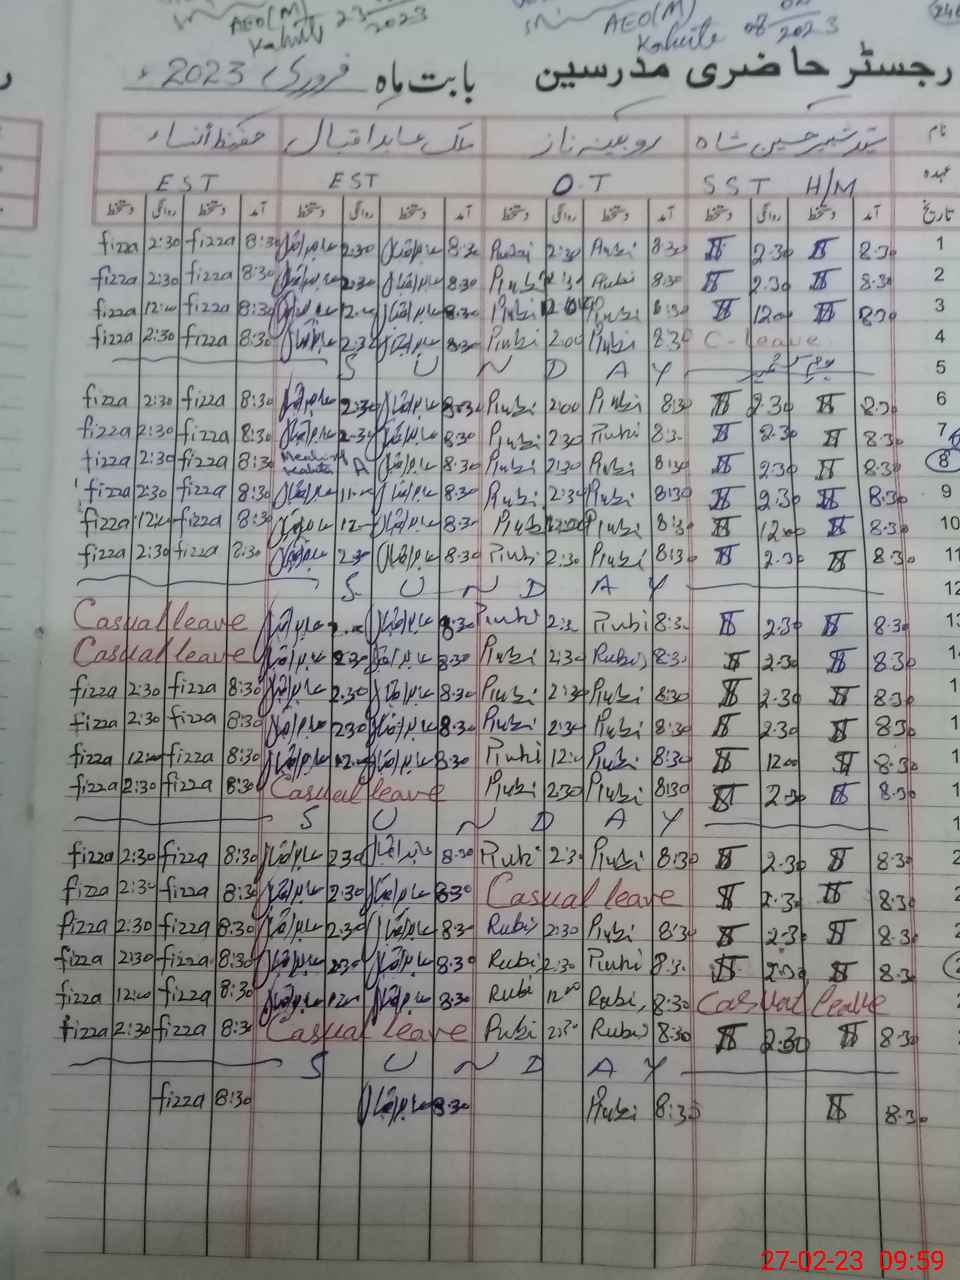 AEO(M) 23 2023 AEO(M)
Kahuta Kahuta 08 2023
رجسٹر حاضری مدرسین بابت ماہ فروری 2023ء
نام سید شبیر حسین شاہ روبینہ ناز ملک عابد اقبال حفیظ النساء
عہدہ SST H/M O.T EST EST
تاریخ آمد دستخط روانگی دستخط آمد دستخط روانگی دستخط آمد دستخط روانگی دستخط آمد دستخط روانگی دستخط
fizza 2:30 fizza 8:30 عابد اقبال 2.30 عابد اقبال 8.30 Rubi 2:30 Rubi 8:30 2.30 8.30 1
fizza 2:30 fizza 8:30 عابد اقبال 2.30 عابد اقبال 8.30 Rubi 2:30 Rubi 8:30 2.30 8.30 2
fizza 12:00 fizza 8:30 عابد اقبال 12.00 عابد اقبال 8.30 Rubi 12:00 Rubi 8:30 1200 8.30 3
fizza 2:30 fizza 8:30 عابد اقبال 2.30 عابد اقبال 8.30 Rubi 2:00 Rubi 8:30 C-leave 4
SUNDAY یوم کشمیر 5
fizza 2:30 fizza 8:30 عابد اقبال 2.30 عابد اقبال 8.30 Rubi 2:00 Rubi 8:30 2.30 8.30 6
fizza 2:30 fizza 8:30 عابد اقبال 2.30 عابد اقبال 8.30 Rubi 2:30 Rubi 8:30 2.30 8.30 7
fizza 2:30 fizza 8:30 A عابد اقبال 8.30 Rubi 2:30 Rubi 8:30 2.30 8.30 8
fizza 2:30 fizza 8:30 عابد اقبال عابد اقبال 8.30 Rubi 2:30 Rubi 8:30 2.30 8.30 9
fizza 12:00 fizza 8:30 عابد اقبال 12 عابد اقبال 8.30 Rubi 12:00 Rubi 8:30 1200 8.30 10
fizza 2:30 fizza 8:30 عابد اقبال 2.30 عابد اقبال 8.30 Rubi 2:30 Rubi 8:30 2.30 8.30 11
SUNDAY 12
Casual leave عابد اقبال عابد اقبال 8.30 Rubi 2:30 Rubi 8:30 2.30 8.30
Casual leave عابد اقبال 2.30 عابد اقبال 8.30 Rubi 2:30 Rubi 8:30 2.30 8.30
fizza 2:30 fizza 8:30 عابد اقبال 2.30 عابد اقبال 8.30 Rubi 2:30 Rubi 8:30 2.30 8.30
fizza 2:30 fizza 8:30 عابد اقبال 2.30 عابد اقبال 8.30 Rubi 2:30 Rubi 8:30 2.30 8.30
fizza 12:00 fizza 8:30 عابد اقبال 12.00 عابد اقبال 8.30 Rubi 12:00 Rubi 8:30 1200 8.30
fizza 2:30 fizza 8:30 Casual leave Rubi 2:30 Rubi 8:30 2.30 8.30
SUNDAY
fizza 2:30 fizza 8:30 عابد اقبال 2.30 عابد اقبال 8.30 Rubi 2:30 Rubi 8:30 2.30 8.30
fizza 2:30 fizza 8:30 عابد اقبال 2.30 عابد اقبال 8.30 Casual leave 2.30 8.30
fizza 2:30 fizza 8:30 عابد اقبال 2.30 عابد اقبال 8.30 Rubi 2:30 Rubi 8:30 2.30 8.30
fizza 2:30 fizza 8:30 عابد اقبال 2.30 عابد اقبال 8.30 Rubi 2:30 Rubi 8:30 2.30 8.30
fizza 12:00 fizza 8:30 عابد اقبال 12 عابد اقبال 8.30 Rubi 12:00 Rubi 8:30 Casual leave
fizza 2:30 fizza 8:30 Casual leave Rubi 2:30 Rubi 8:30 2.30 8.30
SUNDAY
fizza 8:30 عابد اقبال 8.30 Rubi 8:30 8.30
27-02-23 09:59